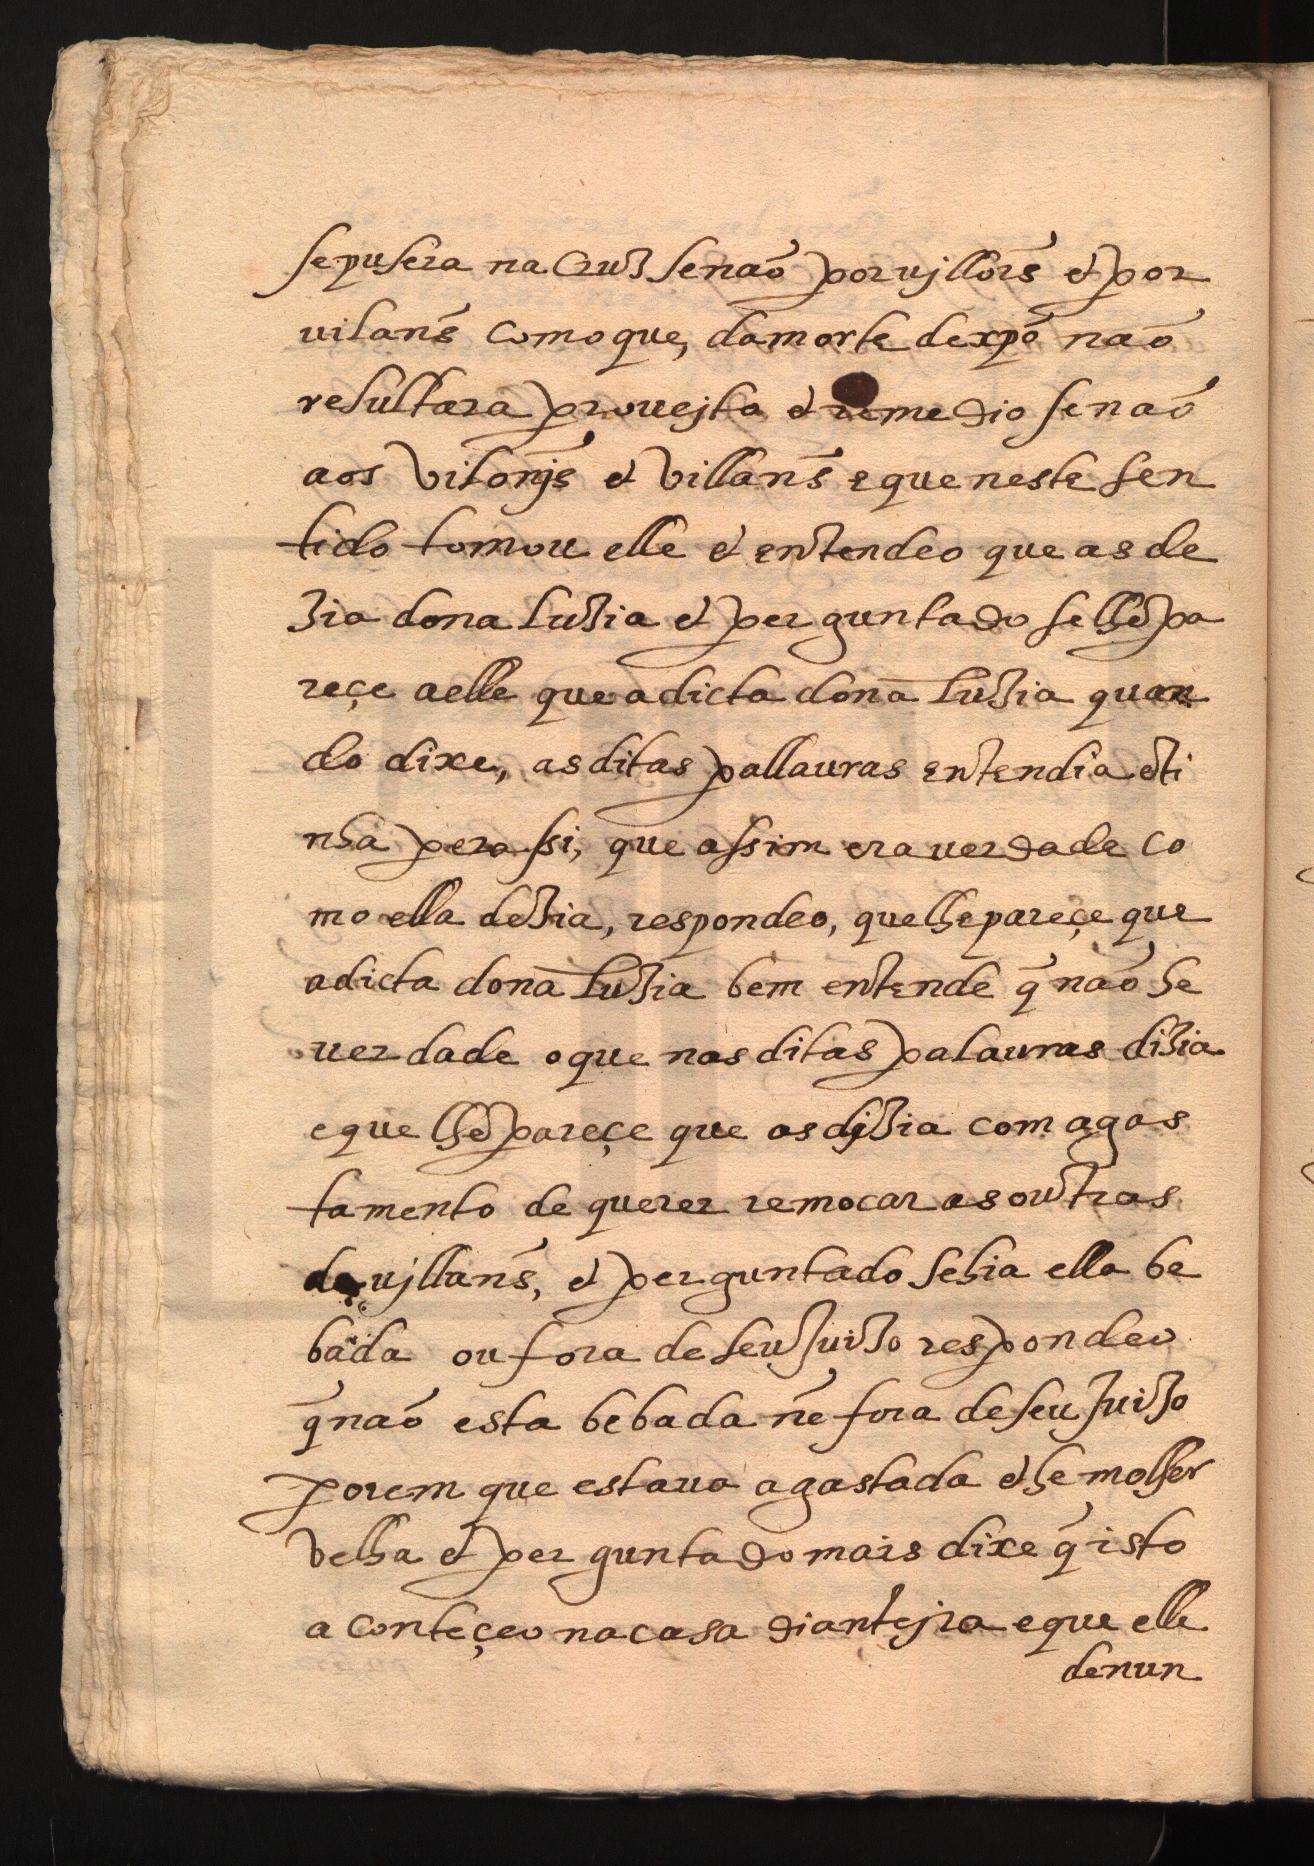 sepusera na Cruz senaõ por ujllõis et por
vilans̃ como que, damorte de xpõ naõ
resultara prouejto et remedio senaõ
aos Vilonjs̃ et Villans̃ eque neste sen
tido tomou elle et entendeo que as de
zia dona luzia et perguntado se lhe pa
reçe aelle que adicta dona luzia quan
do dixe, as ditas pallauras entendia eti
nha pera ssi, que assim era uerdade co
mo ella dezia, respondeo, que lhe pareçe que
adicta dona luzia bem entende q̃ naõ he
uerdade oque nas ditas palauras dizia
eque lhe pareçe que as djzia com agas
tamento de querer remocar as outras
de ujllans̃, et perguntado sehia ella be
bada ou fora de seu Juizo respondeo
q̃ naõ esta bebada nẽ fora de seu Juizo
porem que estaua agastada et he molher
velha et perguntado mais dixe q̃ isto
aconteçeo na casa diantejra eque elle
denun